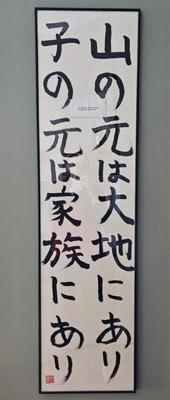 山の元は大地にあり
子の元は家族にあり